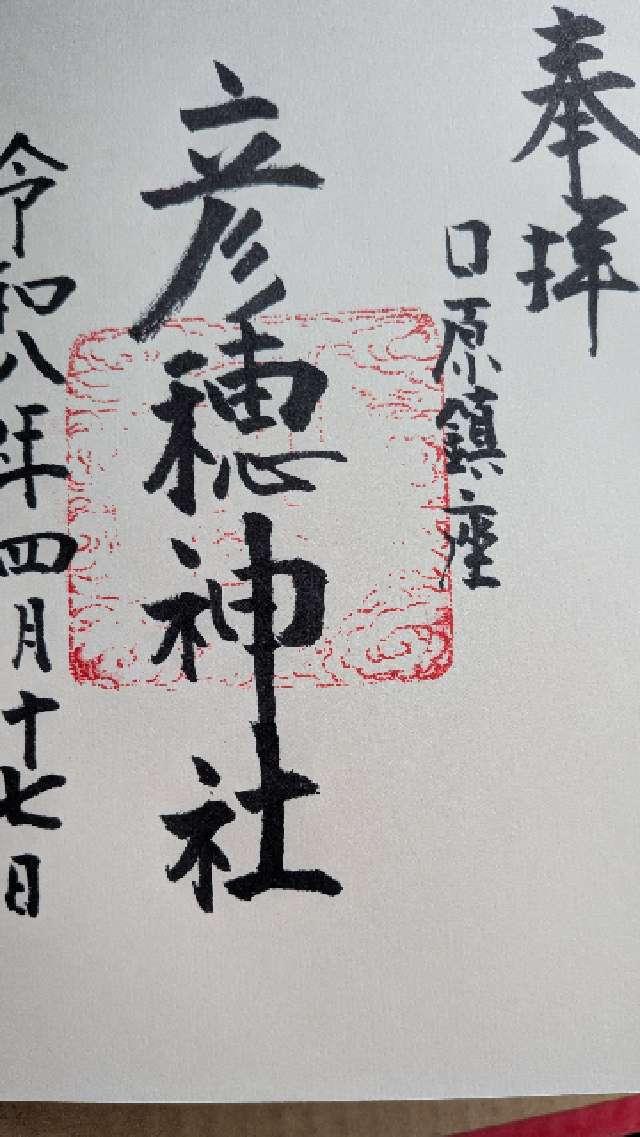 奉拝
日原鎮座
彦穂神社
令和八年四月十七日